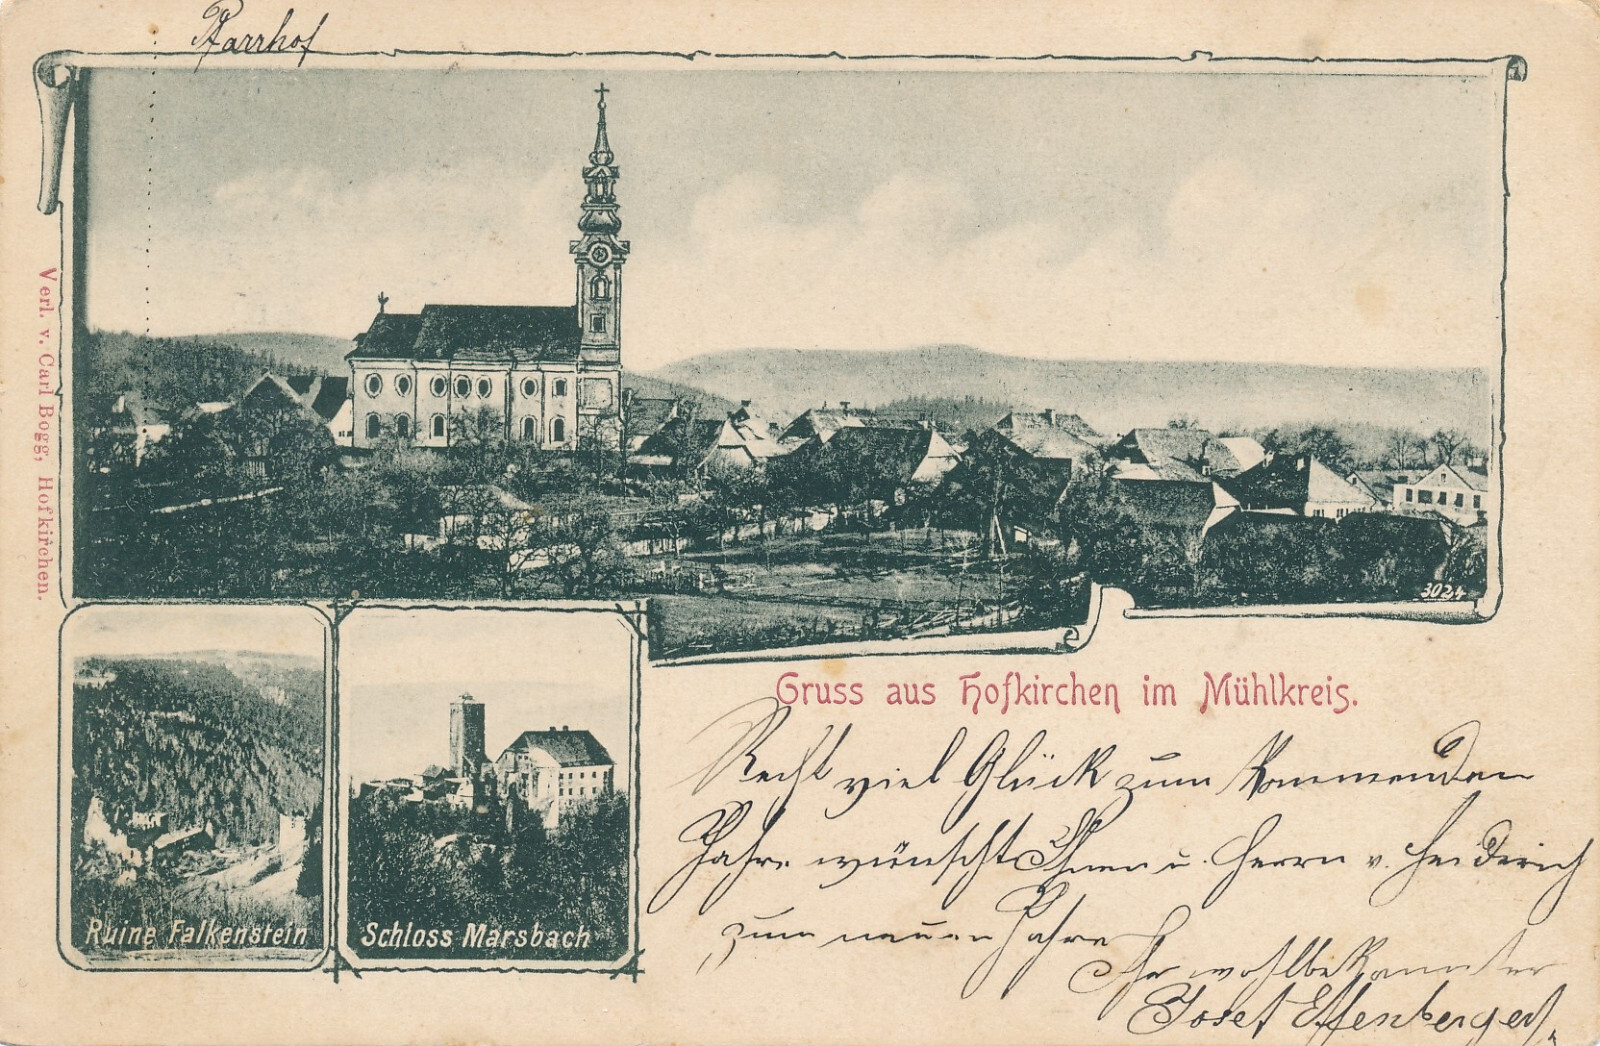 Pfarrhof
Verl. v. Carl Bogg, Hofkirchen.
3024
Ruine Falkenstein
Schloss Marsbach
Gruss aus Hofkirchen im Mühlkreis.
Recht viel Glück zum kommenden
Jahre wünscht Ihnen u. Herrn v. Heiderich
zum neuen Jahre
Ihr wohlbekannter
Josef Effenberger